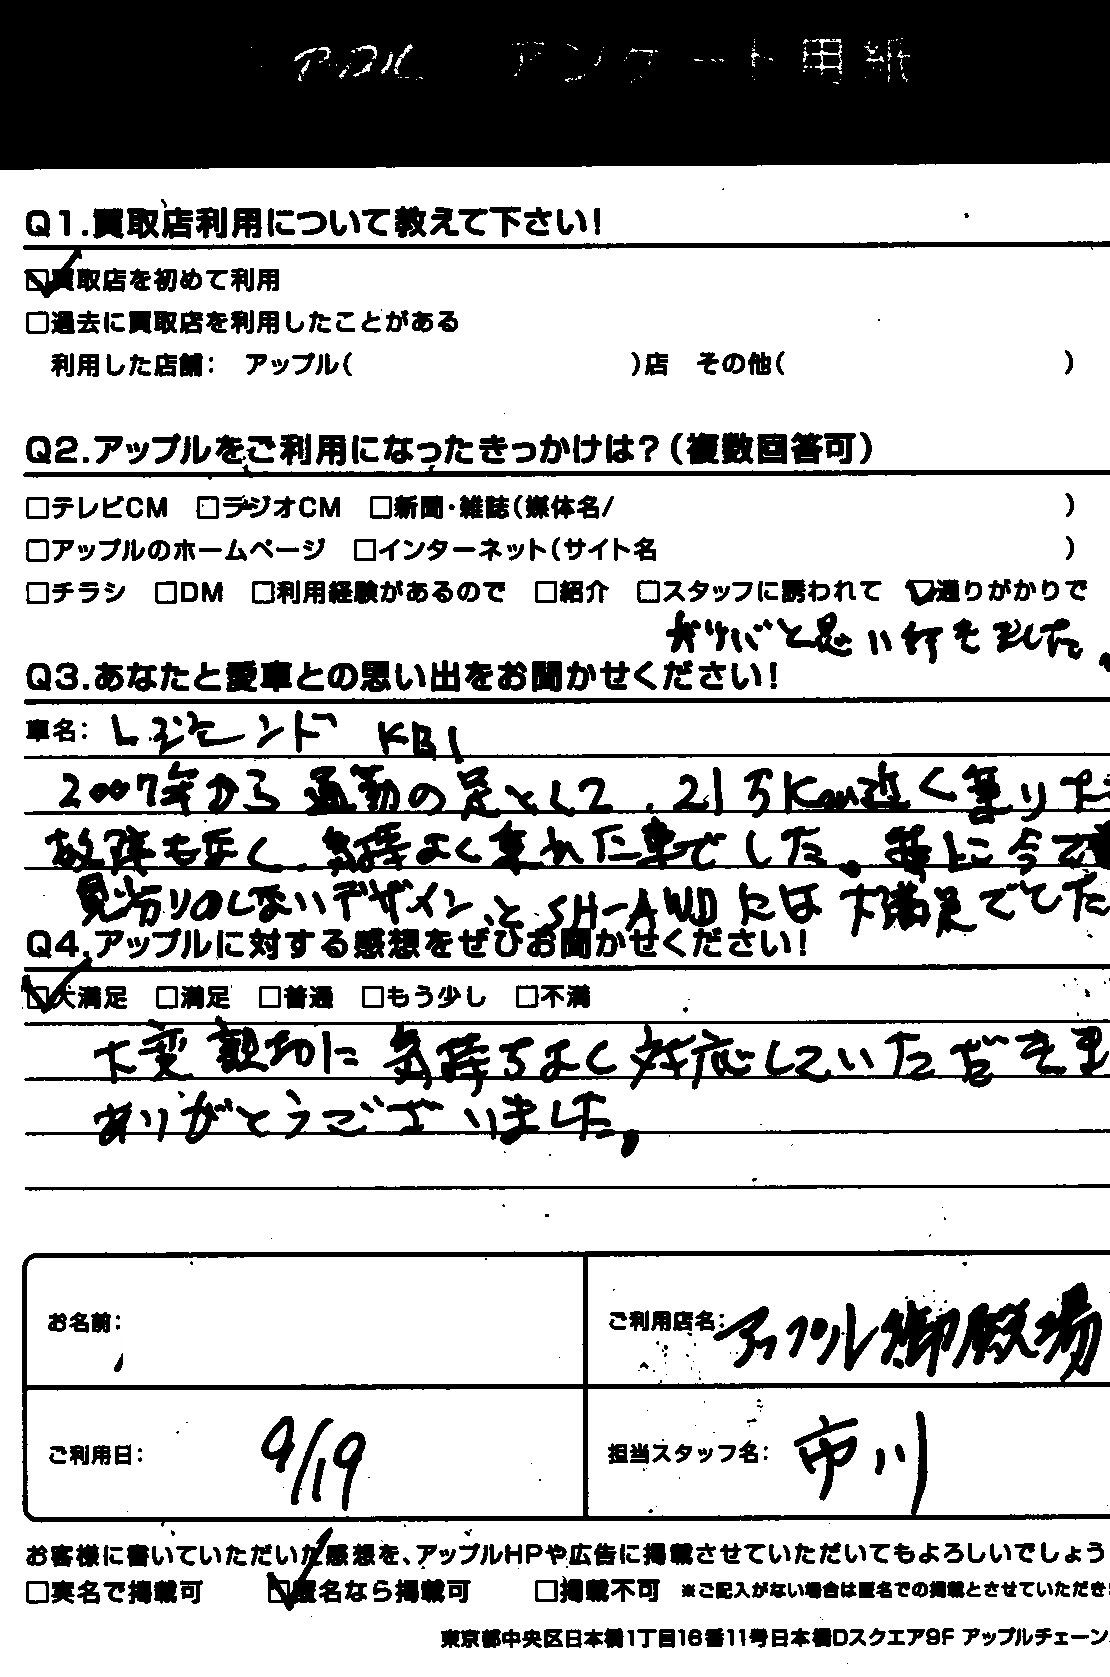 アップル アンケート用紙
Q1.買取店利用について教えて下さい!
☑買取店を初めて利用
□過去に買取店を利用したことがある
利用した店舗: アップル( )店 その他( )
Q2.アップルをご利用になったきっかけは?(複数回答可)
□テレビCM □ラジオCM □新聞・雑誌(媒体名/ )
□アップルのホームページ □インターネット(サイト名 )
□チラシ □DM □利用経験があるので □紹介 □スタッフに誘われて ☑通りがかりで
と思い行きました。
Q3.あなたと愛車との思い出をお聞かせください!
車名: レジェンド KB1
2007年から通勤の足として、21万Km近く乗りた
故障もなく、気持よく乗れた車でした。 今で
見劣りのしないデザインとSH-AWDには大満足でした
Q4.アップルに対する感想をぜひお聞かせください!
☑大満足 □満足 □普通 □もう少し □不満
大変親切に気持ちよく対応していただきま
ありがとうございました。
お名前:
ご利用店名: アップル御殿場
ご利用日: 9/19
担当スタッフ名: 市川
お客様に書いていただいた感想を、アップルHPや広告に掲載させていただいてもよろしいでしょう
□実名で掲載可 ☑匿名なら掲載可 □掲載不可 ※ご記入がない場合は匿名での掲載とさせていただき
東京都中央区日本橋1丁目16番11号日本橋Dスクエア9F アップルチェーン